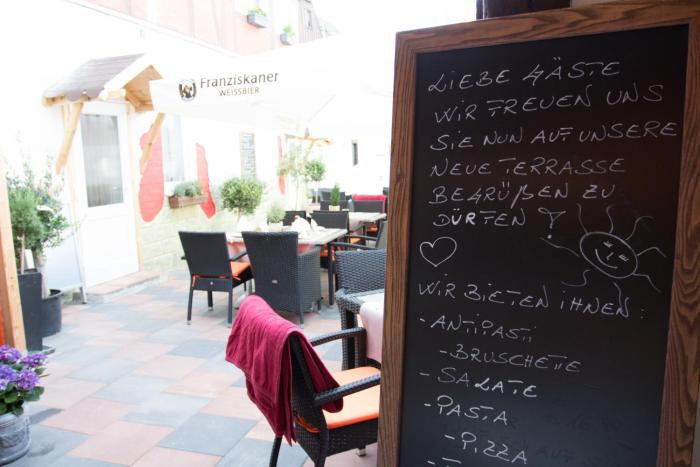 Franziskaner
WEISSBIER
LIEBE GÄSTE
WIR FREUEN UNS
SIE NUN AUF UNSERE
NEUE TERRASSE
BEGRÜßEN ZU
DÜRFEN!
WIR BIETEN IHNEN:
- ANTIPASTI
- BRUSCHETTE
- SALATE
- PASTA
- PIZZA